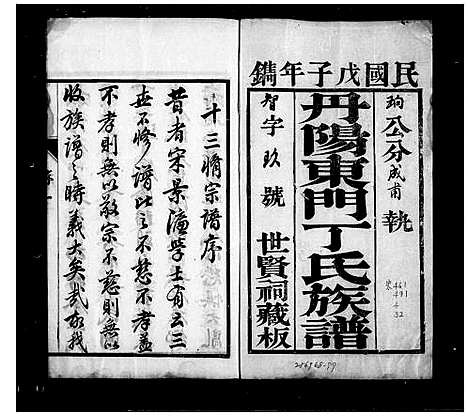 民國戊子年鐫
珣公分成甫執
丹陽東門丁氏族譜
智字玖號
世賢祠藏板
十三脩宗譜序
昔者宋景濂學士有云三
世不修譜比之不慈不孝蓋
不孝則無以敬宗不慈則無以
收族譜之時義大矣哉我